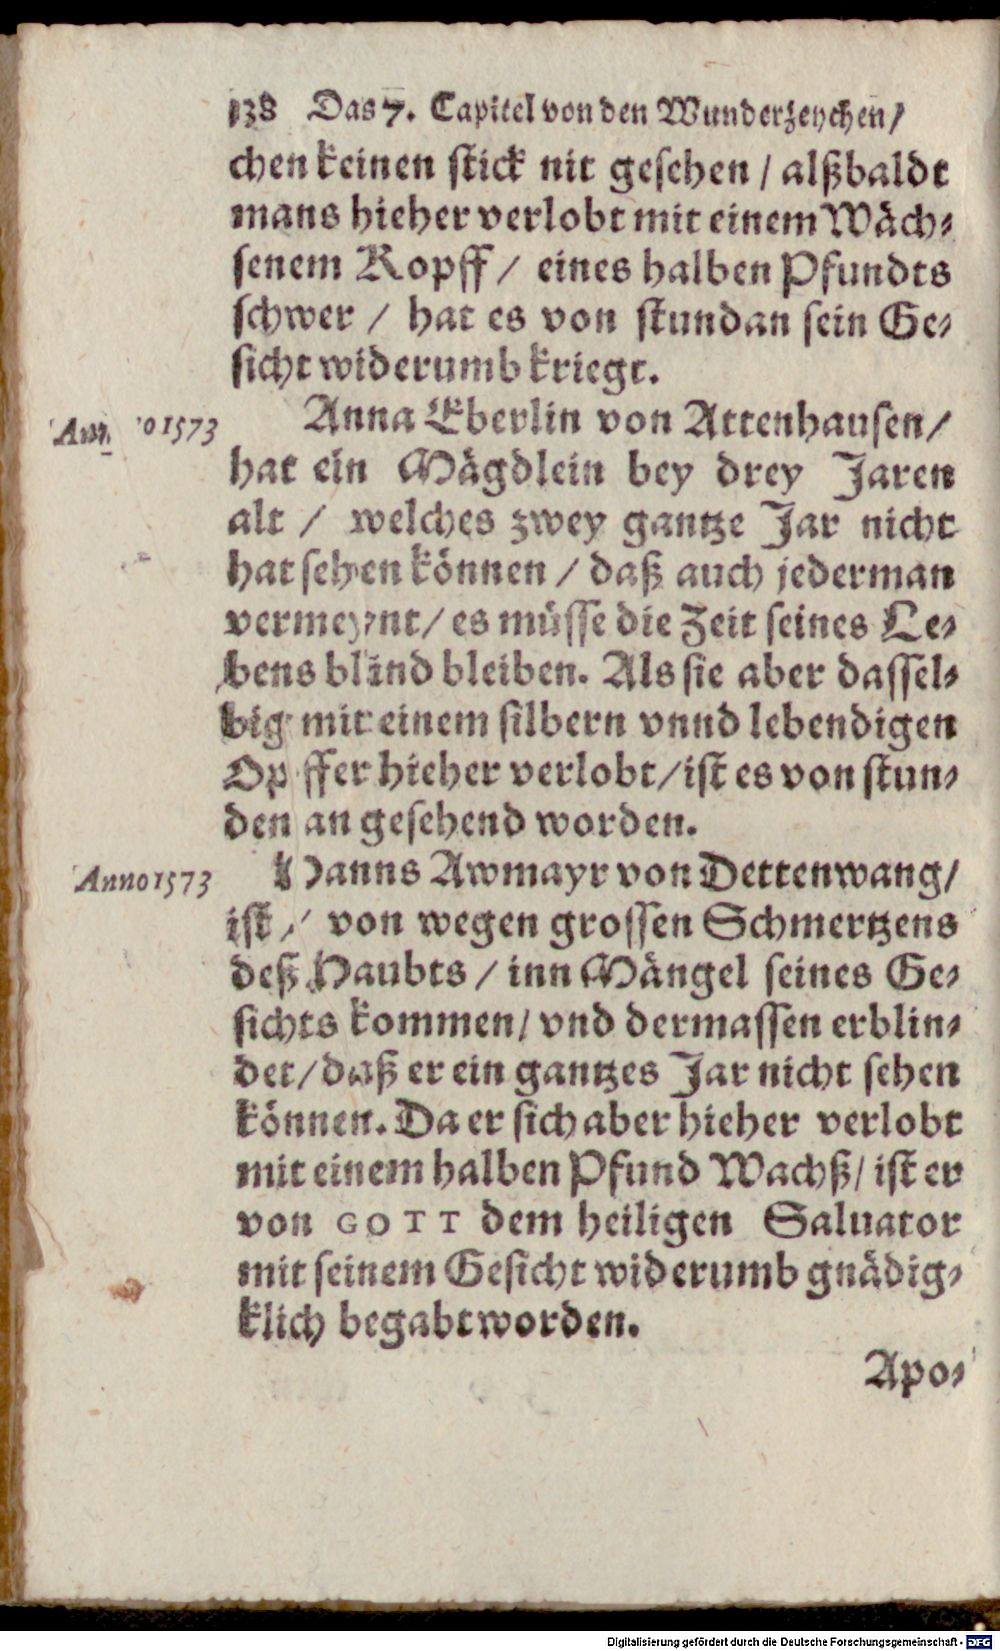 138 Das 7. Capitel von den Wunderzeychen/
chen keinen stick nit gesehen / alßbaldt
mans hieher verlobt mit einem Wäch⸗
senem Kopff / eines halben Pfundts
schwer / hat es von stundan sein Ge⸗
sicht widerumb kriegt.
Anno 1573
Anna Eberlin von Attenhausen/
hat ein Mägdlein bey drey Jaren
alt / welches zwey gantze Jar nicht
hat sehen können / daß auch jederman
vermeynt/ es müsse die Zeit seines Le⸗
bens blind bleiben. Als sie aber dassel⸗
big mit einem silbern vnnd lebendigen
Opffer hieher verlobt/ ist es von stun⸗
den an gesehend worden.
Anno 1573
Hanns Awmayr von Dettenwang/
ist / von wegen grossen Schmertzens
deß Haubts / inn Mängel seines Ge⸗
sichts kommen/ vnd dermassen erblin⸗
det/ daß er ein gantzes Jar nicht sehen
können. Da er sich aber hieher verlobt
mit einem halben Pfund Wachß/ ist er
von GOTT dem heiligen Saluator
mit seinem Gesicht widerumb gnädig⸗
klich begabt worden.
Apo⸗
Digitalisierung gefördert durch die Deutsche Forschungsgemeinschaft - DFG